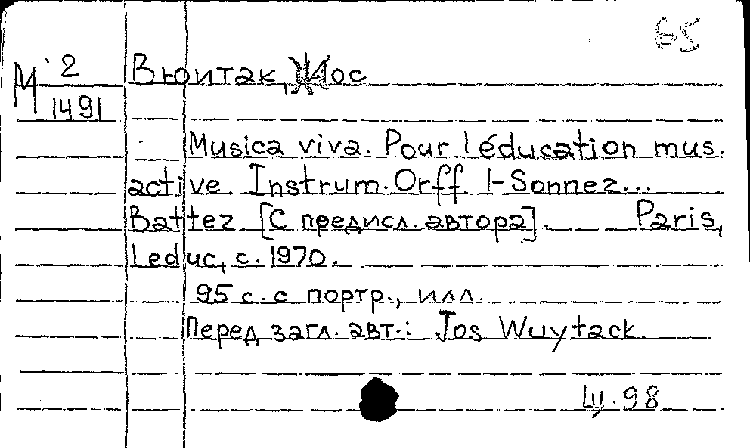 65
М 2
1491
Вюитак, Жос
Musica viva. Pour l'éducation mus.
active. Instrum. Orff. 1-Sonnez...
Battez [С предисл. автора]. Paris,
Leduc, c. 1970.
95 с. с портр., илл.
Перед загл. авт.: Jos Wuytack.
Ц. 98